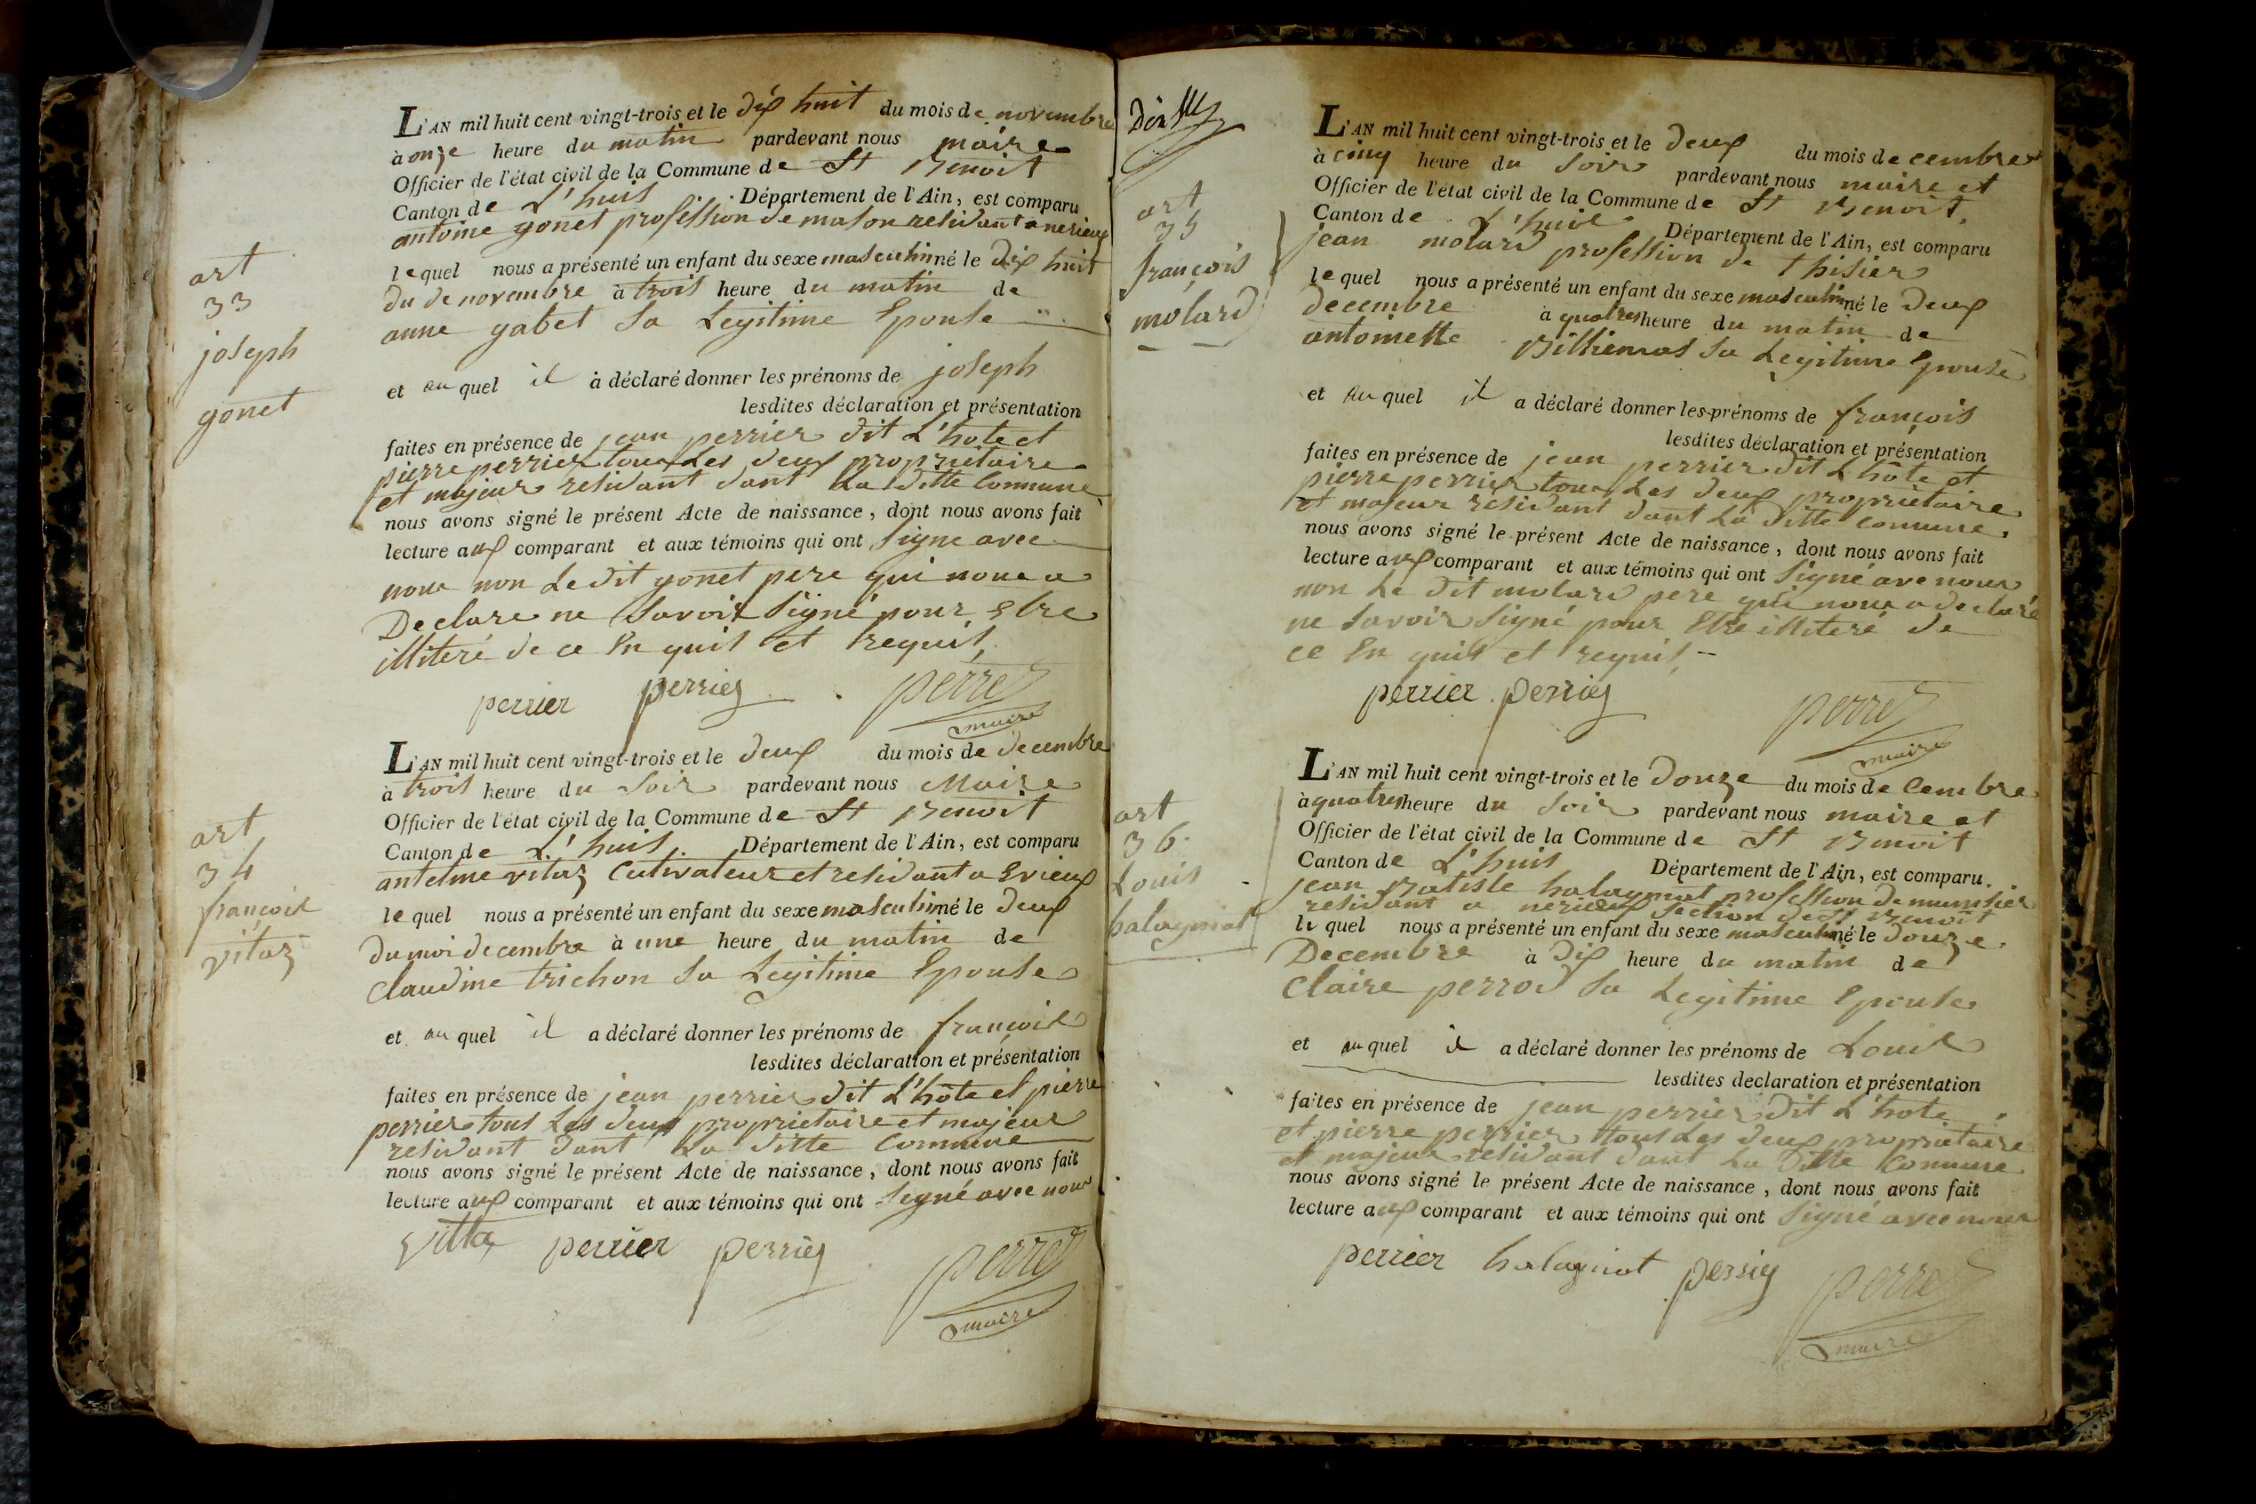 L'AN mil huit cent vingt-trois et le dix huit du mois de novembre
à onze heure du matin pardevant nous maire
Officier de l'état civil de la Commune de St Benoit
Canton de L'huis Département de l'Ain, est comparu
antoine gonet profession de mason residant a nerieux
le quel nous a présenté un enfant du sexe masculin né le dix huit
du de novembre à trois heure du matin de
anne gabet sa Legitime Epouse
et au quel il à déclaré donner les prénoms de joseph
lesdites déclaration et présentation
faites en présence de jean perrier dit L'hote et
pierre perrier tous Les deux proprietaire
et majeur residant dant La ditte Commune
nous avons signé le présent Acte de naissance, dont nous avons fait
lecture aux comparant et aux témoins qui ont signe avec
nous non Le dit gonet pere qui nous a
Declare ne savoir signé pour Etre
illiteré de ce En quit et requit,
perrier perrier perret
maire
art
33
joseph
gonet
L'AN mil huit cent vingt-trois et le deux du mois de decembre
à trois heure du soir pardevant nous Maire
Officier de l'état civil de la Commune de St Benoit
Canton de L'huis. Département de l'Ain, est comparu
antelme vitaz Cutivateur et residant a Evieux
le quel nous a présenté un enfant du sexe masculin né le deux
du moi decembre à une heure du matin de
Claudine trichon sa Legitime Epouse
et au quel il a déclaré donner les prénoms de françois
lesdites déclaration et présentation
faites en présence de jean perrier dit L'hôte et pierre
perrier tous Les deux proprietaire et majeur
residant dant La ditte Commune
nous avons signé le présent Acte de naissance, dont nous avons fait
lecture aux comparant et aux témoins qui ont signé avec nous
Vittaz perrier perrier perret
maire
art
34
françois
vitaz
L'AN mil huit cent vingt-trois et le deux du mois de cembre
à cinq heure du soir pardevant nous maire et
Officier de l'état civil de la Commune de St Benoit,
Canton de L'huis Département de l'Ain, est comparu
jean molard profession de thisier
le quel nous a présenté un enfant du sexe masculin né le deux
decembre à quatres heure du matin de
antoinette sa Legitime Epouse
et au quel il a déclaré donner les prénoms de françois
lesdites déclaration et présentation
faites en présence de jean perrier dit L'hôte et
pierre perrier tous Les deux proprietaire
et majeur residant dant La ditte comune,
nous avons signé le présent Acte de naissance, dont nous avons fait
lecture aux comparant et aux témoins qui ont signé ave nous
non Le dit molard pere qui nous a declaré
ne savoir signé pour Etre illiteré de
ce En quit et requit,
perrier perrier perret
maire
art
35
françois
molard
L'AN mil huit cent vingt-trois et le douze du mois de cembre
à quatres heure du soir pardevant nous maire et
Officier de l'état civil de la Commune de St Benoit
Canton de L'huis Département de l'Ain, est comparu
jean Batiste balaymat profession de munisier
residant a nerieux section de St Benoit
le quel nous a présenté un enfant du sexe masculin né le douze
Decembre à dix heure du matin de
Claire perrod sa Legitime Epouse
et au quel il a déclaré donner les prénoms de Louis
lesdites declaration et présentation
faites en présence de jean perrier dit L'hote
et pierre perrier tous Les deux proprietaire
et majeur residant dant La ditte Comune
nous avons signé le présent Acte de naissance, dont nous avons fait
lecture aux comparant et aux témoins qui ont signé avec nous
perrier perrier perret
maire
art
36
Louis